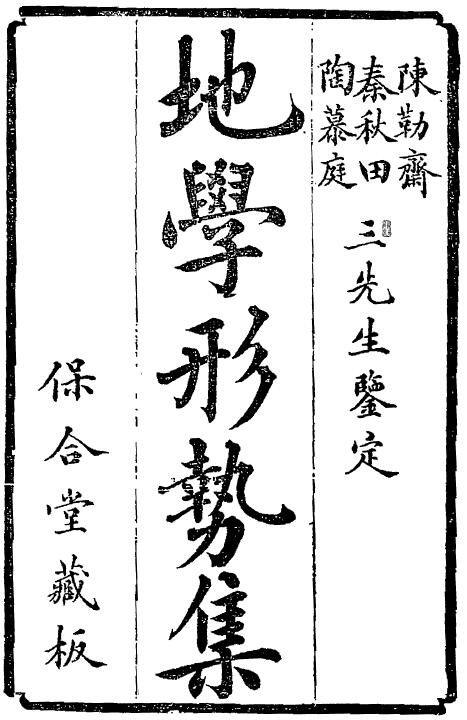 陳勒齋
秦秋田
陶慕庭
三先生鑒定
地學形勢集
保合堂藏板